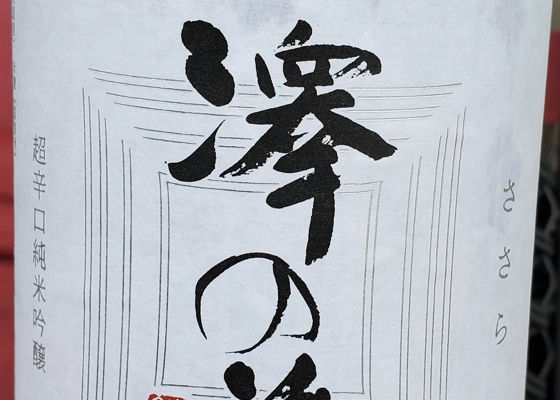 ささら
澤の
超辛口純米吟醸